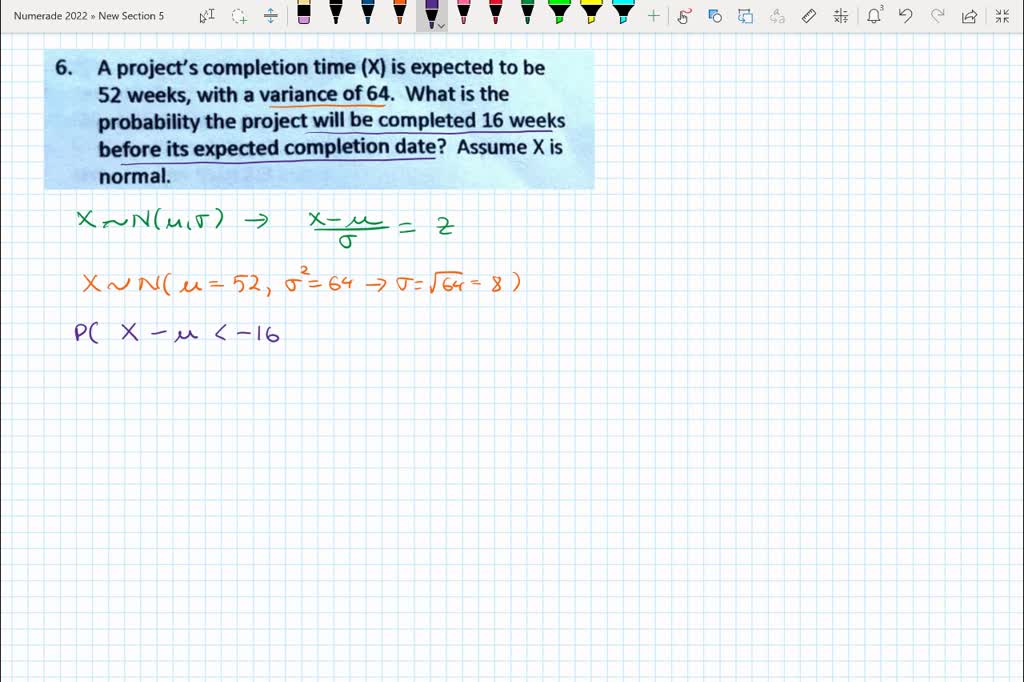 Numerade 2022 » New Section 5
3
6. A project's completion time (X) is expected to be
52 weeks, with a variance of 64. What is the
probability the project will be completed 16 weeks
before its expected completion date? Assume X is
normal.
X ~ N(μ, σ) → (x - μ)/σ = z
X ~ N( μ = 52, σ² = 64 → σ = √64 = 8 )
P( X - μ < -16